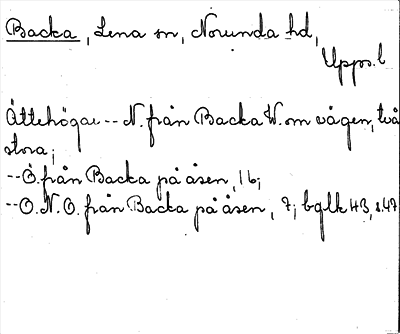 Backa, Lena sn, Norunda hd,
Upps. l
Ättehögar -- N. från Backa W. om vägen, två
stora;
-- Ö. från Backa på åsen, 16;
-- O.N.O. från Backa på åsen, 7; bglk H3, s.47